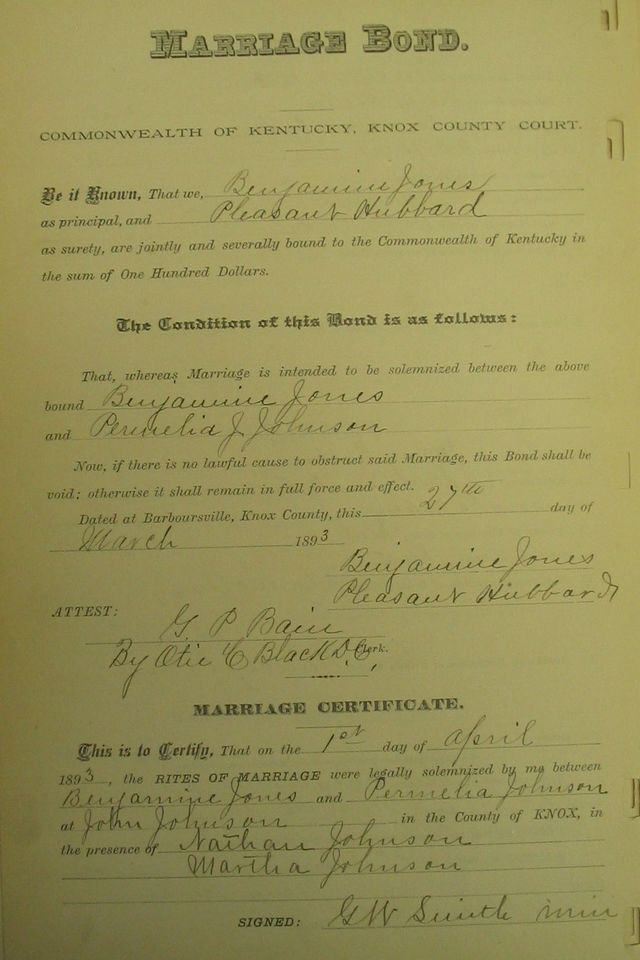 MARRIAGE BOND.
COMMONWEALTH OF KENTUCKY, KNOX COUNTY COURT.
Be it Known, That we, Benjamine Jones
as principal, and Pleasant Hubbard
as surety, are jointly and severally bound to the Commonwealth of Kentucky in
the sum of One Hundred Dollars.
The Condition of this Bond is as follows:
That, whereas Marriage is intended to be solemnized between the above
bound Benjamine Jones
and Permelia J. Johnson
Now, if there is no lawful cause to obstruct said Marriage, this Bond shall be
void; otherwise it shall remain in full force and effect.
Dated at Barboursville, Knox County, this 27th day of
March 1893
Benjamine Jones
Pleasant Hubbard
ATTEST:
G. P Bain
By Otie C Black D.C, Clerk.
MARRIAGE CERTIFICATE.
This is to Certify, That on the 1st day of April
1893, the RITES OF MARRIAGE were legally solemnized by me between
Benjamine Jones and Permelia Johnson
at John Johnson in the County of KNOX, in
the presence of Nathan Johnson
Martha Johnson
SIGNED: G W Smith min